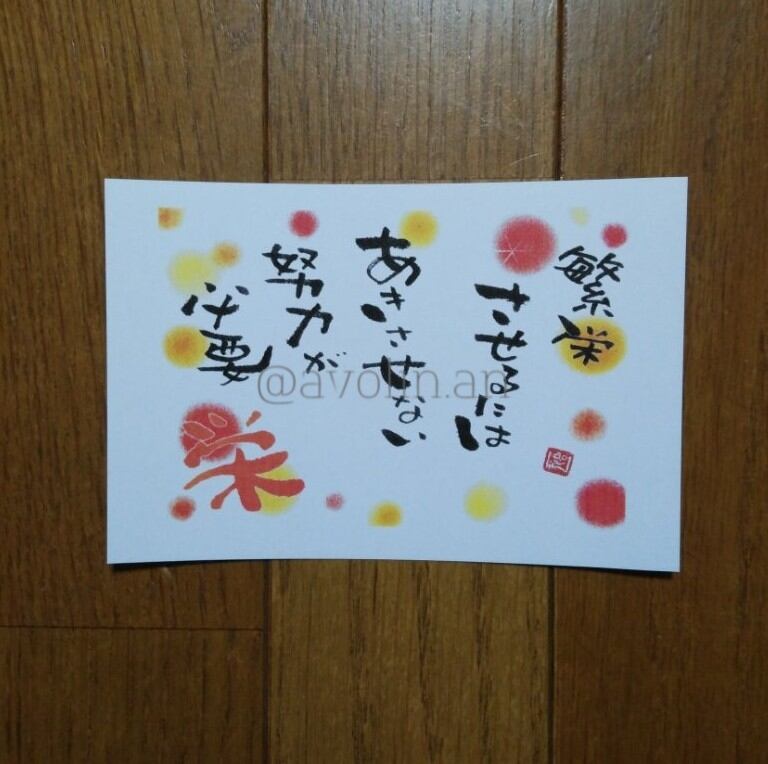 繁栄
させるには
あきさせない
努力が
必要
栄
@avolin.an